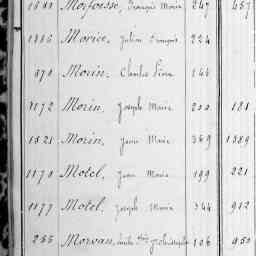 Morfoesse, François Marie 247 457
1886 Morice, Julien François 224
870 Morin, Charles Pierre
1172 Morin, Joseph Marie 181
1521 Morin, Jean Marie 369 1389
1170 Motel, Jean Marie 199 221
1177 Motel, Joseph Marie 344 912
255 Morvan, 106 950